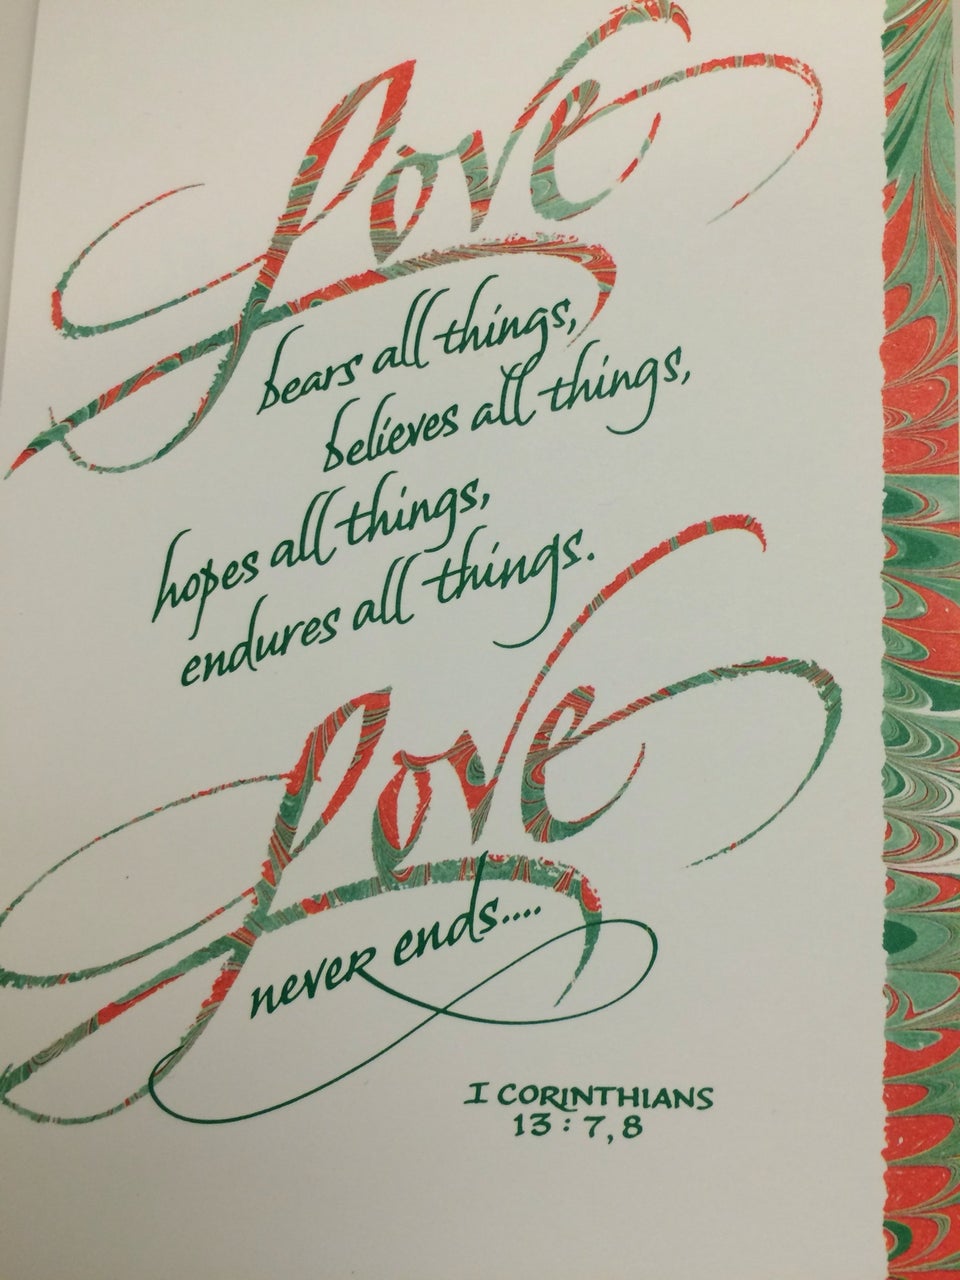 Love
bears all things,
believes all things,
hopes all things,
endures all things.
Love
never ends....
I CORINTHIANS
13 : 7, 8